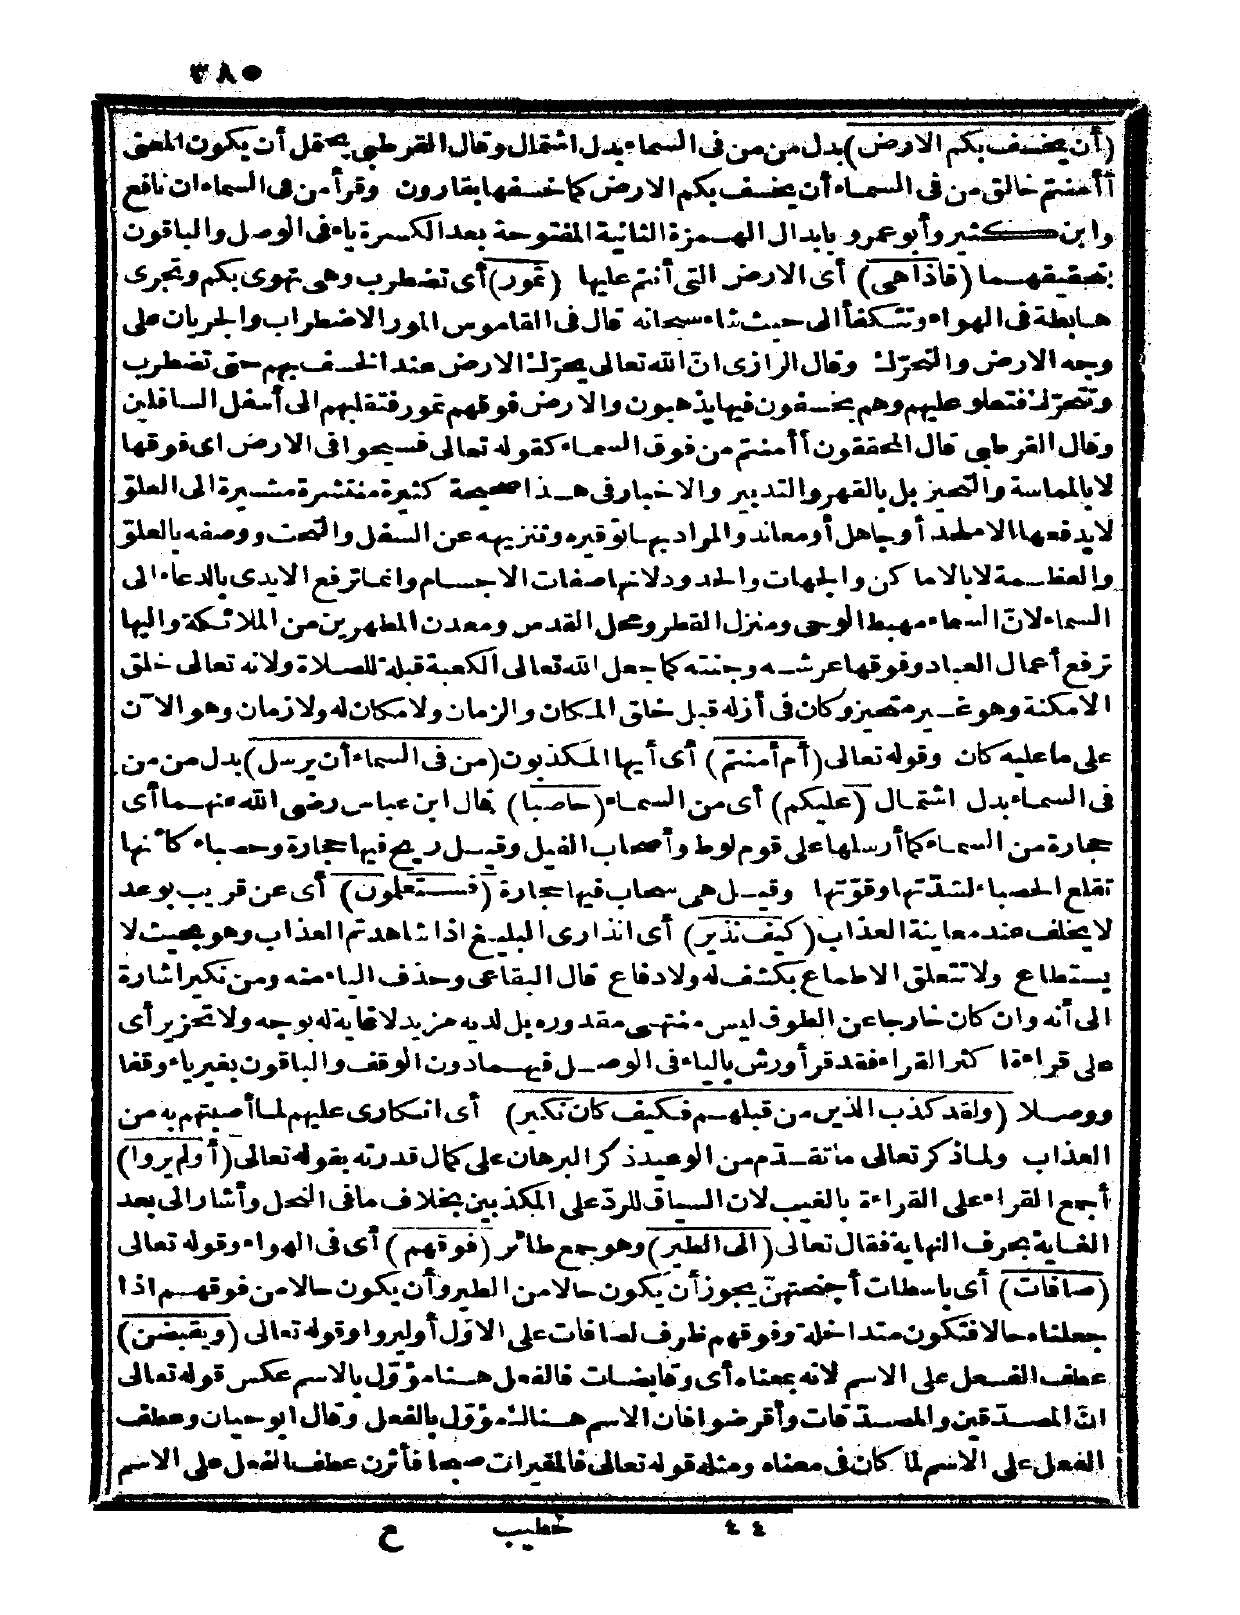 ٣٨٥
(أن يخسف بكم الارض) بدل من من فى السماء بدل اشتمال وقال القرطبي يحتمل أن يكون المعنى
أأمنتم خالق من فى السماء أن يخسف بكم الارض كما خسفها بقارون وقرأ من فى السماء ان نافع
وابن كثير وأبو عمرو بابدال الهمزة الثانية المفتوحة بعد الكسرة ياء فى الوصل والباقون
بتحقيقهما (فاذا هى) أى الارض التى أنتم عليها (تمور) أى تضطرب وهى تهوى بكم وتجرى
هابطة فى الهواء وتتكفأ الى حيث شاء سبحانه قال فى القاموس المور الاضطراب والجريان على
وجه الارض والتحرّك وقال الرازى انّ الله تعالى يحرّك الارض عند الخسف بهم حتى تضطرب
وتتحرّك فتعلو عليهم وهم يخسفون فيها يذهبون والارض فوقهم تمور فتقلبهم الى أسفل السافلين
وقال القرطبي قال المحققون أأمنتم من فوق السماء كقوله تعالى فسيحوا فى الارض اى فوقها
لا بالمماسة والتحيز بل بالقهر والتدبير والاخبار فى هذا صحيحة كثيرة منتشرة مشيرة الى العلوّ
لا يدفعها الا ملحد أو جاهل أو معاند والمراد بها توقيره وتنزيهه عن السفل والتحت ووصفه بالعلوّ
والعظمة لا بالاماكن والجهات والحدود لانها صفات الاجسام وانما ترفع الايدى بالدعاء الى
السماء لانّ السماء مهبط الوحى ومنزل القطر ومحل القدس ومعدن المطهرين من الملائكة واليها
ترفع أعمال العباد وفوقها عرشه وجنته كما جعل الله تعالى الكعبة قبلة للصلاة ولانه تعالى خلق
الامكنة وهو غير متحيز وكان فى أزله قبل خلق المكان والزمان ولا مكان له ولا زمان وهو الآن
على ما عليه كان وقوله تعالى (أم أمنتم) أى أيها المكذبون (من فى السماء أن يرسل) بدل من من
فى السماء بدل اشتمال (عليكم) أى من السماء (حاصبا) قال ابن عباس رضى الله عنهما أى
حجارة من السماء كما أرسلها على قوم لوط وأصحاب الفيل وقيل ريح فيها حجارة وحصباء كأنها
تقلع الحصباء لشدّتها وقوّتها وقيل هى سحاب فيها حجارة (فستعلمون) أى عن قريب بوعد
لا يخلف عند معاينة العذاب (كيف نذير) أى انذارى البليغ اذا شاهدتم العذاب وهو بحيث لا
يستطاع ولا تتعلق الاطماع بكشف له ولا دفاع قال البقاعى وحذف الياء منه ومن نكير اشارة
الى أنه وان كان خارجا عن الطوق ليس منتهى مقدوره بل لديه مزيد لا غاية له بوجه ولا تحزير أى
على قراءة أكثر القراء فقد قرأ ورش بالياء فى الوصل فيهما دون الوقف والباقون بغير ياء وقفا
ووصلا (ولقد كذب الذين من قبلهم فكيف كان نكير) أى انكارى عليهم لما أصبتهم به من
العذاب ولما ذكر تعالى ما تقدّم من الوعيد ذكر البرهان على كمال قدرته بقوله تعالى (أولم يروا)
أجمع القراء على القراءة بالغيب لان السياق للردّ على المكذبين بخلاف ما فى النحل وأشار الى بعد
الغاية بحرف النهاية فقال تعالى (الى الطير) وهو جمع طائر (فوقهم) أى فى الهواء وقوله تعالى
(صافات) أى باسطات أجنحتهنّ يجوز أن يكون حالا من الطير وأن يكون حالا من فوقهم اذا
جعلناه حالا فتكون متداخلة وفوقهم ظرف لصافات على الاوّل أو ليروا وقوله تعالى (ويقبضن)
عطف الفعل على الاسم لانه بمعناه أى وقابضات فالفعل هنا مؤوّل بالاسم عكس قوله تعالى
انّ المصدّقين والمصدّقات وأقرضوا فان الاسم هنالك مؤوّل بالفعل وقال ابو حيان وعطف
الفعل على الاسم لما كان فى معناه ومثله قوله تعالى فالمغيرات صبحا فأثرن عطف الفعل على الاسم
٤٤ خطيب ع